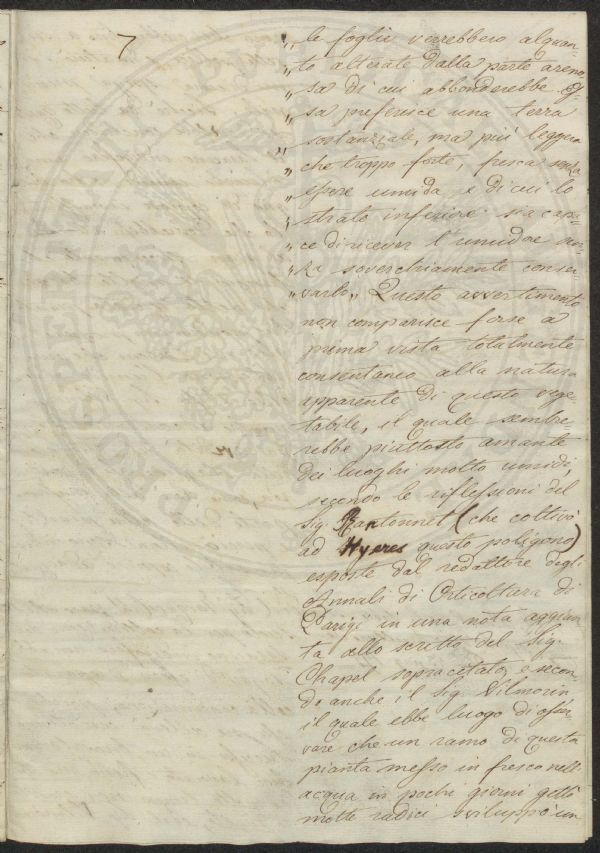 7
„ le foglie verrebbero alquan-
„ to alterate dalla parte areno
„ sa di cui abbonderebbe. Es-
„ sa preferisce una terra
„ sostanziale, ma più leggera
„ che troppo forte, fresca senza
„ essere umida e di cui lo
„ strato inferiore sia capa-
„ ce di ricever l'umidore sen-
„ za soverchiamente conser-
„ varlo„ Questo avvertimento
non comparisce forse a
prima vista totalmente
consentaneo alla natura
apparente di questo vege-
tabile, il quale sembre-
rebbe piuttosto amante
dei luoghi molto umidi,
secondo le riflessioni del
Sig Rantonnet (che coltivò
ad Hyeres questo poligono)
esposte dal redattore degli
Annali di Orticoltura di
Parigi in una nota aggiun
ta allo scritto del Sig.
Chapel sopracitato, e secon-
do anche il Sig. Vilmorin
il quale ebbe luogo di osser-
vare che un ramo di questa
pianta messo in fresco nell'
acqua in pochi giorni gettò
molte radici sviluppò un
PROSPERI